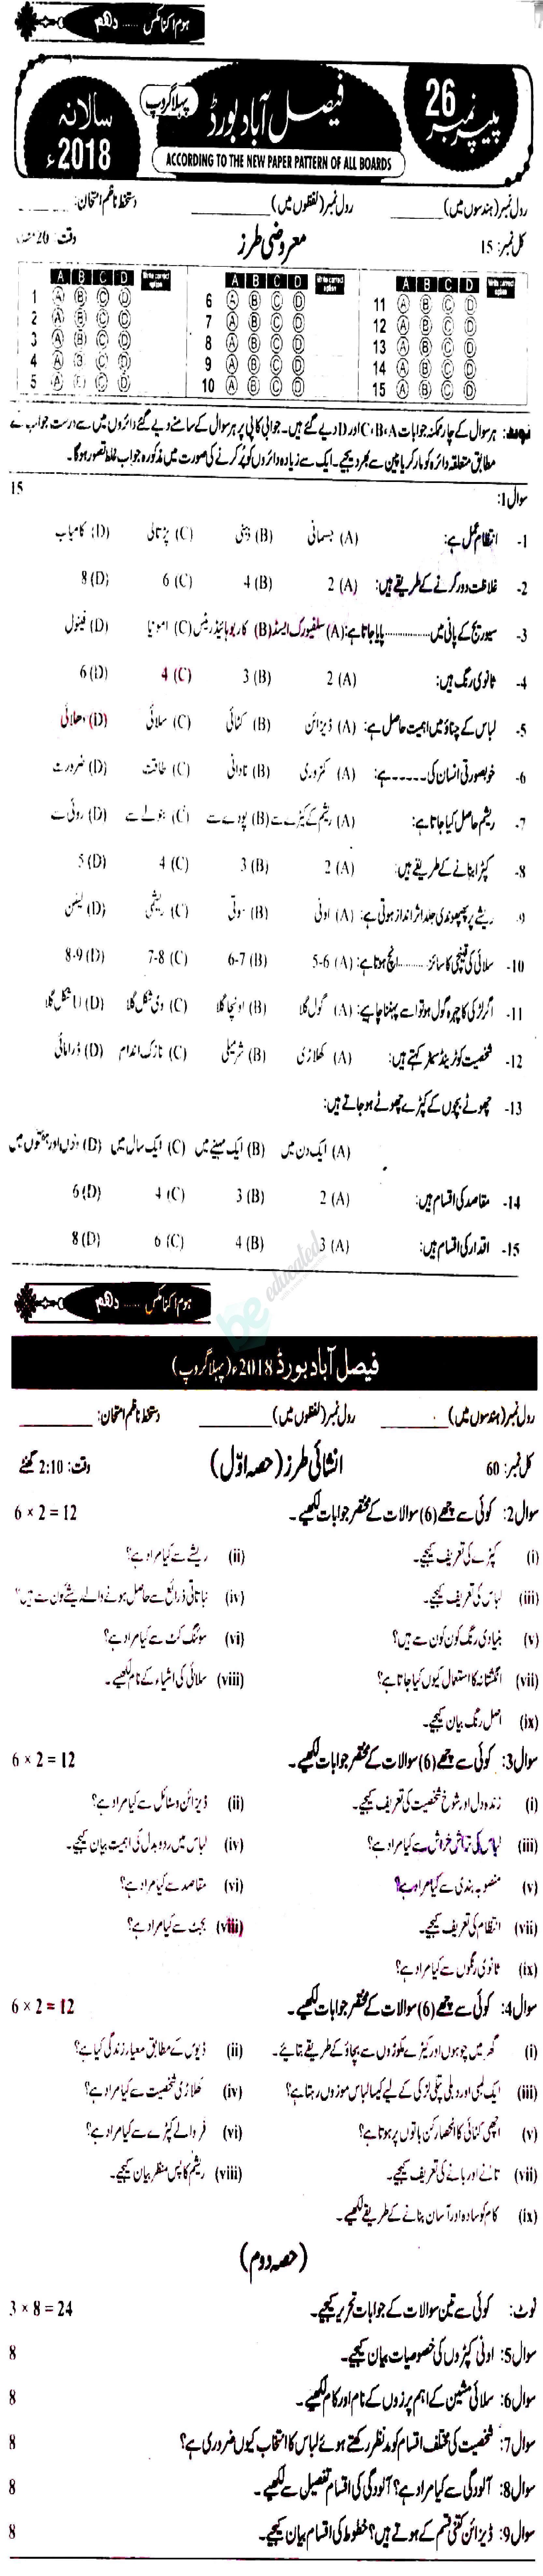 ہوم اکنامکس ...... دہم
پیپر نمبر 26
فیصل آباد بورڈ
پہلا گروپ
سالانہ 2018ء
ACCORDING TO THE NEW PAPER PATTERN OF ALL BOARDS
رول نمبر (ہندسوں میں) ________ رول نمبر (لفظوں میں) ________ دستخط ناظم امتحان: ________
کل نمبر: 15 معروضی طرز وقت: 20
A B C D Write correct option A B C D Write correct option A B C D Write correct option
1 A B C D 6 A B C D 11 A B C D
2 A B C D 7 A B C D 12 A B C D
3 A B C D 8 A B C D 13 A B C D
4 A B C D 9 A B C D 14 A B C D
5 A B C D 10 A B C D 15 A B C D
نوٹ: ہر سوال کے چار ممکنہ جوابات C، B، A اور D دیے گئے ہیں۔ جوابی کاپی پر ہر سوال کے سامنے دیے گئے دائروں میں سے درست جواب کے
مطابق متعلقہ دائرہ کو مارکر یا پین سے بھر دیجیے۔ ایک سے زیادہ دائروں کو پُر کرنے کی صورت میں مذکورہ جواب غلط تصور ہوگا۔
سوال 1: 15
1- انتظام عمل ہے: (A) جسمانی (B) ذہنی (C) پڑتالی (D) کامیاب
2- غلاظت دور کرنے کے طریقے ہیں: (A) 2 (B) 4 (C) 6 (D) 8
3- سیوریج کے پانی میں ............ پایا جاتا ہے: (A) سلفیورک ایسڈ (B) کاربوہائیڈریٹس (C) امونیا (D) فینول
4- ثانوی رنگ ہیں: (A) 2 (B) 3 (C) 4 (D) 6
5- لباس کے چناؤ میں اہمیت حاصل ہے: (A) ڈیزائن (B) کٹائی (C) سلائی (D) دھلائی
6- خوبصورتی انسان کی ------ ہے: (A) کمزوری (B) نادانی (C) طاقت (D) ضرورت
7- ریشم حاصل کیا جاتا ہے: (A) ریشم کے کیڑے سے (B) پودے سے (C) بنولے سے (D) روئی سے
8- کپڑا بنانے کے طریقے ہیں: (A) 2 (B) 3 (C) 4 (D) 5
9- ریشے پر پھپھوندی جلد اثر انداز ہوتی ہے: (A) اونی (B) سوتی (C) ریشمی (D) لینن
10- سلائی کی قینچی کا سائز ......... انچ ہوتا ہے: (A) 5-6 (B) 6-7 (C) 7-8 (D) 8-9
11- اگر لڑکی کا چہرہ گول ہو تو اسے پہننا چاہیے: (A) گول گلا (B) اونچا گلا (C) وی شکل گلا (D) شکل گلا
12- شخصیت کو ٹرینڈ سیٹر کہتے ہیں: (A) کھلاڑی (B) شرمیلی (C) نازک اندام (D) ڈرامائی
13- چھوٹے بچوں کے کپڑے چھوٹے ہو جاتے ہیں:
(A) ایک دن میں (B) ایک مہینے میں (C) ایک سال میں (D) دنوں اور ہفتوں میں
14- مقاصد کی اقسام ہیں: (A) 2 (B) 3 (C) 4 (D) 6
15- اقدار کی اقسام ہیں: (A) 3 (B) 4 (C) 6 (D) 8
be educated
ہوم اکنامکس ...... دہم
فیصل آباد بورڈ 2018ء (پہلا گروپ)
رول نمبر (ہندسوں میں) ________ رول نمبر (لفظوں میں) ________ دستخط ناظم امتحان: ________
کل نمبر: 60 انشائی طرز (حصہ اوّل) وقت: 2:10 گھنٹے
سوال 2: کوئی سے چھے (6) سوالات کے مختصر جوابات لکھیے۔ 6 × 2 = 12
(i) کپڑے کی تعریف کیجیے۔ (ii) ریشے سے کیا مراد ہے؟
(iii) لباس کی تعریف کیجیے۔ (iv) نباتاتی ذرائع سے حاصل ہونے والے ریشے کون سے ہیں؟
(v) بنیادی رنگ کون کون سے ہیں؟ (vi) سوئنگ کٹ سے کیا مراد ہے؟
(vii) انگشتانہ کا استعمال کیوں کیا جاتا ہے؟ (viii) سلائی کی اشیاء کے نام لکھیے۔
(ix) اصل رنگ بیان کیجیے۔
سوال 3: کوئی سے چھے (6) سوالات کے مختصر جوابات لکھیے۔ 6 × 2 = 12
(i) زندہ دل اور شوخ شخصیت کی تعریف کیجیے۔ (ii) ڈیزائن و سٹائل سے کیا مراد ہے؟
(iii) لباس کی تراش خراش سے کیا مراد ہے؟ (iv) لباس میں ردو بدل کی اہمیت بیان کیجیے۔
(v) منصوبہ بندی سے کیا مراد ہے؟ (vi) مقاصد سے کیا مراد ہے؟
(vii) انتظام کی تعریف کیجیے۔ (viii) بجٹ سے کیا مراد ہے؟
(ix) ثانوی رنگوں سے کیا مراد ہے؟
سوال 4: کوئی سے چھے (6) سوالات کے مختصر جوابات لکھیے۔ 6 × 2 = 12
(i) گھر میں چوہوں اور کیڑے مکوڑوں سے بچاؤ کے طریقے بتائیے۔ (ii) ڈیوس کے مطابق معیار زندگی کیا ہے؟
(iii) ایک لمبی اور دبلی پتلی لڑکی کے لیے کیسا لباس موزوں رہتا ہے؟ (iv) کھلاڑی شخصیت سے کیا مراد ہے؟
(v) اچھی کٹائی کا انحصار کن باتوں پر ہوتا ہے؟ (vi) فر والے کپڑے سے کیا مراد ہے؟
(vii) تانے اور بانے کی تعریف کیجیے۔ (viii) ریشم کا پس منظر بیان کیجیے۔
(ix) کام کو سادہ اور آسان بنانے کے طریقے لکھیے۔
(حصہ دوم)
نوٹ: کوئی سے تین سوالات کے جوابات تحریر کیجیے۔ 3 × 8 = 24
سوال 5: اونی کپڑوں کی خصوصیات بیان کیجیے۔ 8
سوال 6: سلائی مشین کے اہم پرزوں کے نام اور کام لکھیے۔ 8
سوال 7: شخصیت کی مختلف اقسام کو مدنظر رکھتے ہوئے لباس کا انتخاب کیوں ضروری ہے؟ 8
سوال 8: آلودگی سے کیا مراد ہے؟ آلودگی کی اقسام تفصیل سے لکھیے۔ 8
سوال 9: ڈیزائن کتنی قسم کے ہوتے ہیں؟ خطوط کی اقسام بیان کیجیے۔ 8